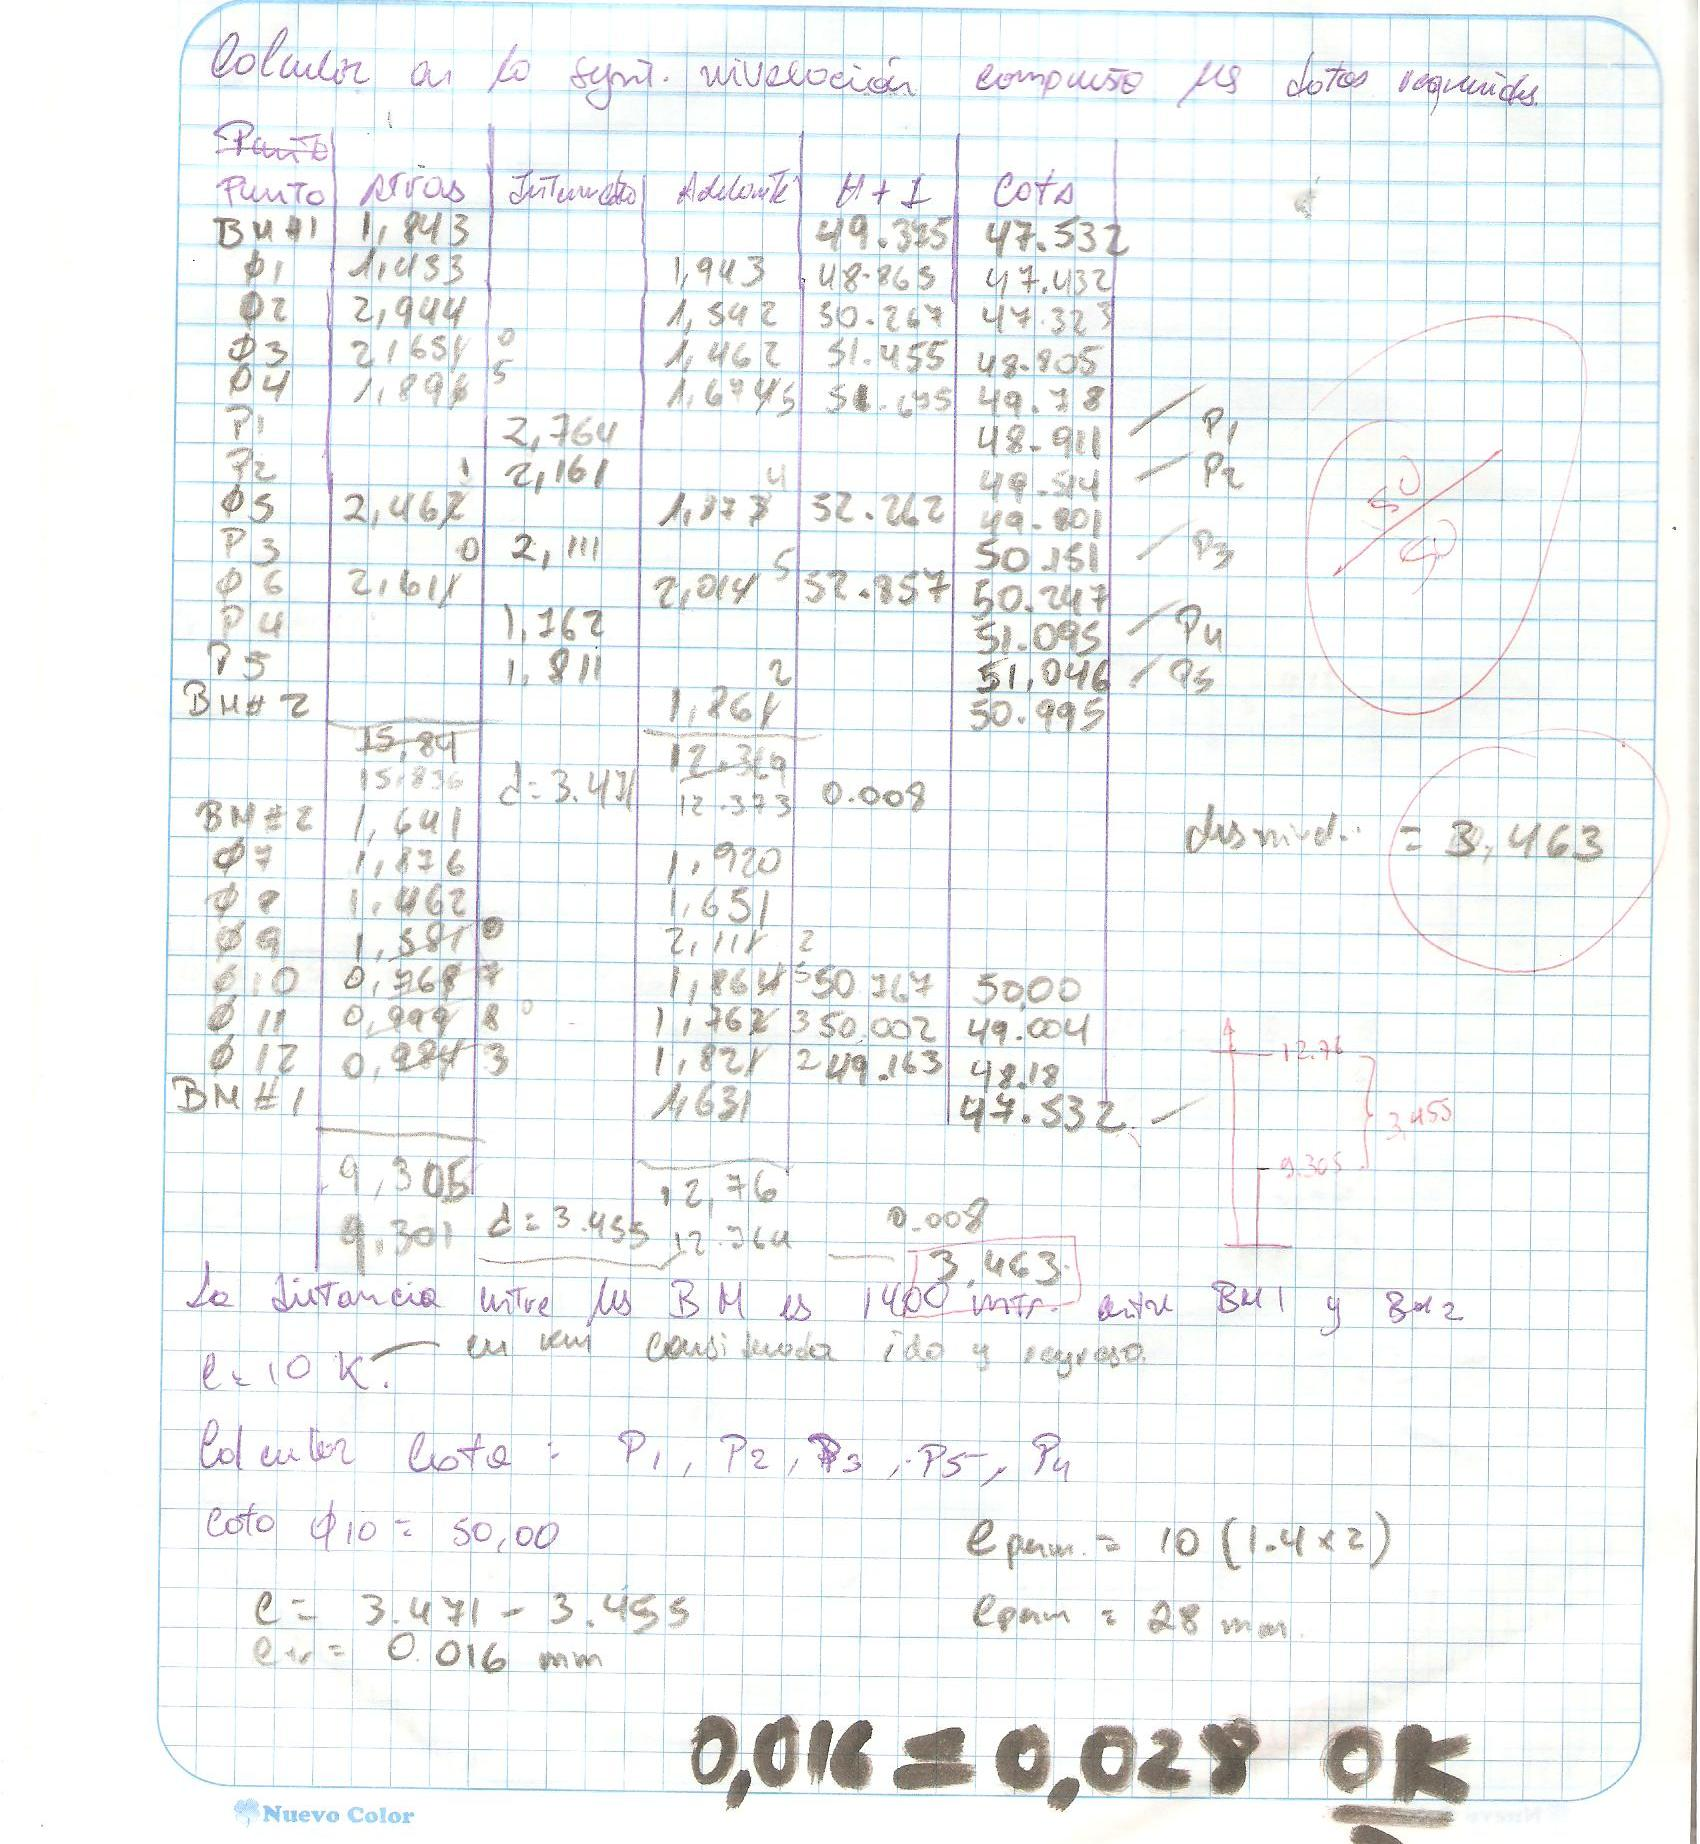 Calcular en la sgnt. nivelación compuesta los datos requeridos.
Punto
Punto Atras Intermedio Adelante H + I Cota
BM#1 1,843 49.375 47.532
φ1 1,433 1,943 48.865 47.432
φ2 2,944 1,542 50.267 47.323
φ3 2,651 0 1,462 51.455 48.805
φ4 1,896 5 1,674 5 51.675 49.78
P1 2,764 48.911 P1
P2 2,161 49.514 P2
φ5 2,462 1 1,873 4 52.262 49.801
P3 2,111 50.151 P3
φ6 2,611 0 2,014 5 52.857 50.247
P4 1,762 51.095 P4
P5 1,811 51,046 P5
BM#2 1,861 2 50.995
15,84 12.369
15.836 d= 3.471 12.373 0.008
BM#2 1,641
desnivel. = 3,463
φ7 1,876 1,920
φ8 1,462 1,651
φ9 1,581 0 2,111 2
φ10 0,768 7 1,864 5 50.767 50,00
φ11 0,999 8 1,762 3 50.002 49.004
φ12 0,984 3 1,821 2 49.163 48.18
BM#1 1,631 47.532
12.76
3,455
9.305
9,305 12,76
9,301 d= 3.455 12.764 0.008
3,463
La distancia entre los BM es 1400 mtr. entre BM1 y BM2
e=10 K. en km considerada ida y regreso.
Calcular Cota = P1, P2, P3, P5, P4
Coto φ10 = 50,00
e perm. = 10 (1.4x2)
e= 3.471 - 3.455
e perm = 28 mm.
= 0.016 mm
0,016 = 0,028 OK
Nuevo Color